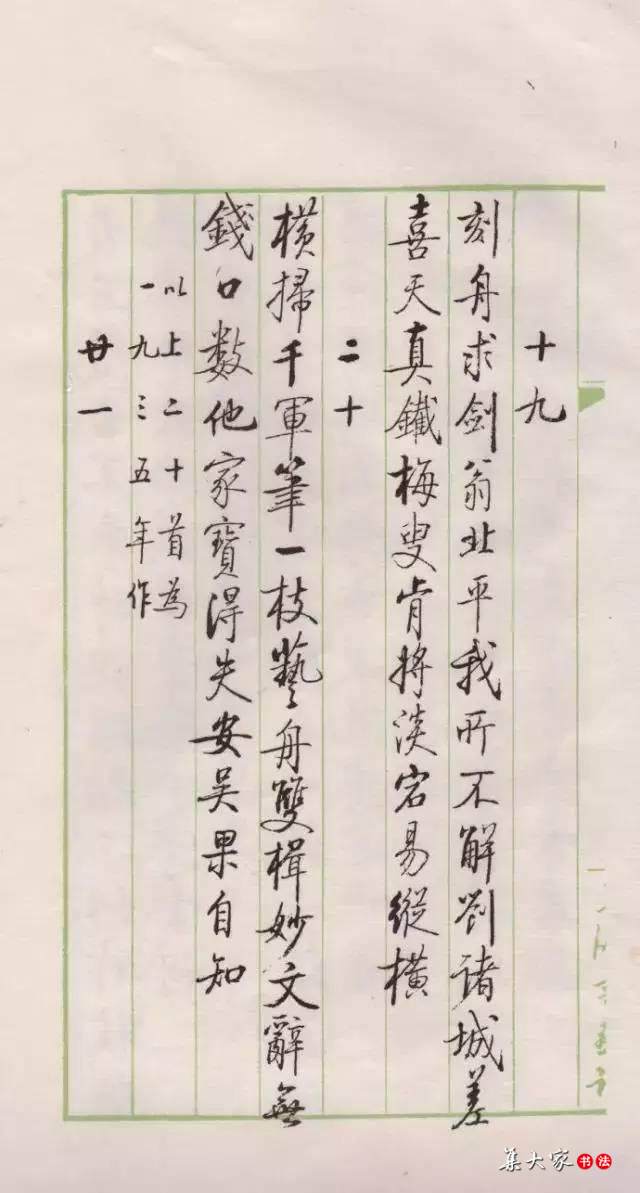 十九
刻舟求劍翁北平我所不解劉諸城差
喜天真鐵梅叟肯將淡宕易縱橫
二十
橫掃千軍筆一枝藝舟雙楫妙文辭無
錢口數他家寶得失安吳果自知
以上二十首為
一九三五年作
廿一
集大家 书法